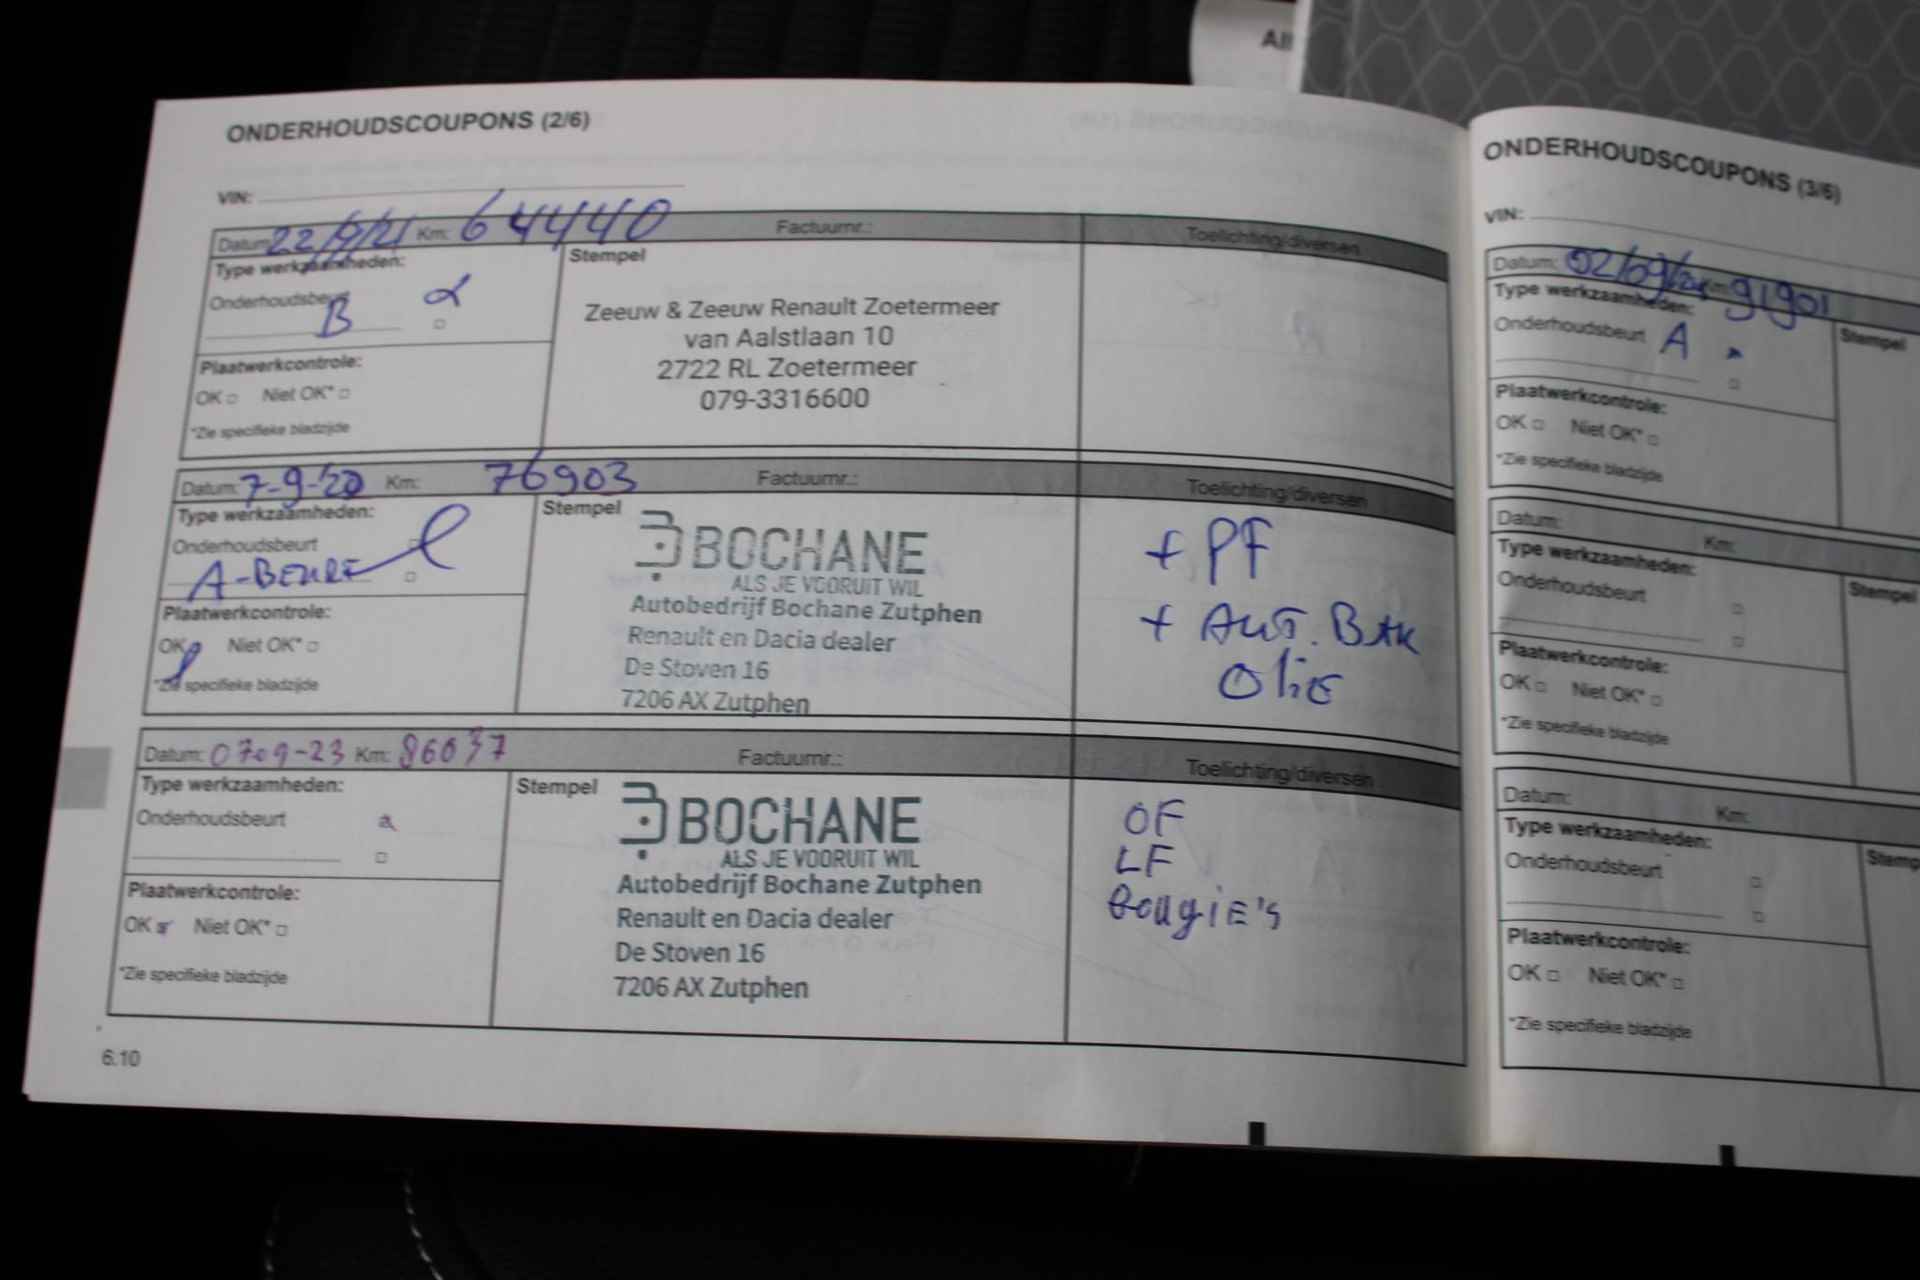 All
ONDERHOUDSCOUPONS (2/6)
VIN:
Datum: 22/9/21 Km: 64440 Factuurnr.: Toelichting/diversen
Type werkzaamheden:
Stempel
Onderhoudsbeurt
B
Zeeuw & Zeeuw Renault Zoetermeer
van Aalstlaan 10
2722 RL Zoetermeer
079-3316600
Plaatwerkcontrole:
OK Niet OK*
*Zie specifieke bladzijde
Datum: 7-9-20 Km: 76903 Factuurnr.: Toelichting/diversen
Type werkzaamheden:
Stempel
Onderhoudsbeurt
A-BEURT
BOCHANE
ALS JE VOORUIT WIL
Autobedrijf Bochane Zutphen
Renault en Dacia dealer
De Stoven 16
7206 AX Zutphen
+ PF
+ AUT. BAK
OliE
Plaatwerkcontrole:
OK Niet OK*
*Zie specifieke bladzijde
Datum: 0709-23 Km: 86037 Factuurnr.: Toelichting/diversen
Type werkzaamheden:
Stempel
Onderhoudsbeurt
BOCHANE
ALS JE VOORUIT WIL
Autobedrijf Bochane Zutphen
Renault en Dacia dealer
De Stoven 16
7206 AX Zutphen
OF
LF
BougiE's
Plaatwerkcontrole:
OK Niet OK*
*Zie specifieke bladzijde
6.10
ONDERHOUDSCOUPONS (3/6)
VIN:
Datum: 02/09/24 Km: 91901
Type werkzaamheden:
Stempel
Onderhoudsbeurt A
Plaatwerkcontrole:
OK Niet OK*
*Zie specifieke bladzijde
Datum: Km:
Type werkzaamheden:
Stempel
Onderhoudsbeurt
Plaatwerkcontrole:
OK Niet OK*
*Zie specifieke bladzijde
Datum: Km:
Type werkzaamheden:
Stemp
Onderhoudsbeurt
Plaatwerkcontrole:
OK Niet OK*
*Zie specifieke bladzijde